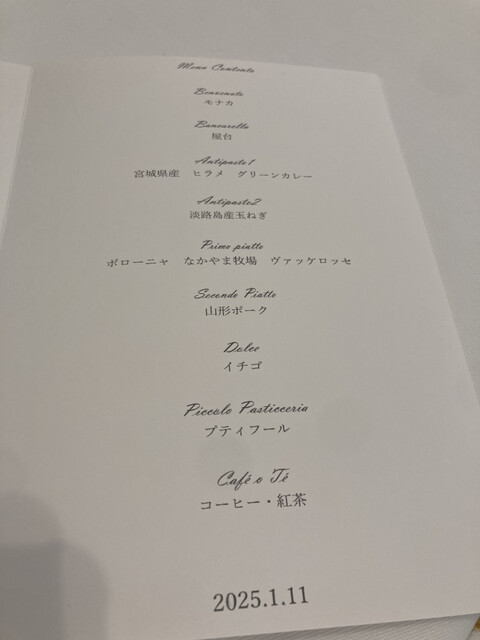 Menu Contents
Benvenuto
モナカ
Bancarella
屋台
Antipasto1
宮城県産　ヒラメ　グリーンカレー
Antipasto2
淡路島産玉ねぎ
Primo piatto
ボローニャ　なかやま牧場　ヴァッケロッセ
Secondo Piatto
山形ポーク
Dolce
イチゴ
Piccolo Pasticceria
プティフール
Café o Té
コーヒー・紅茶
2025.1.11